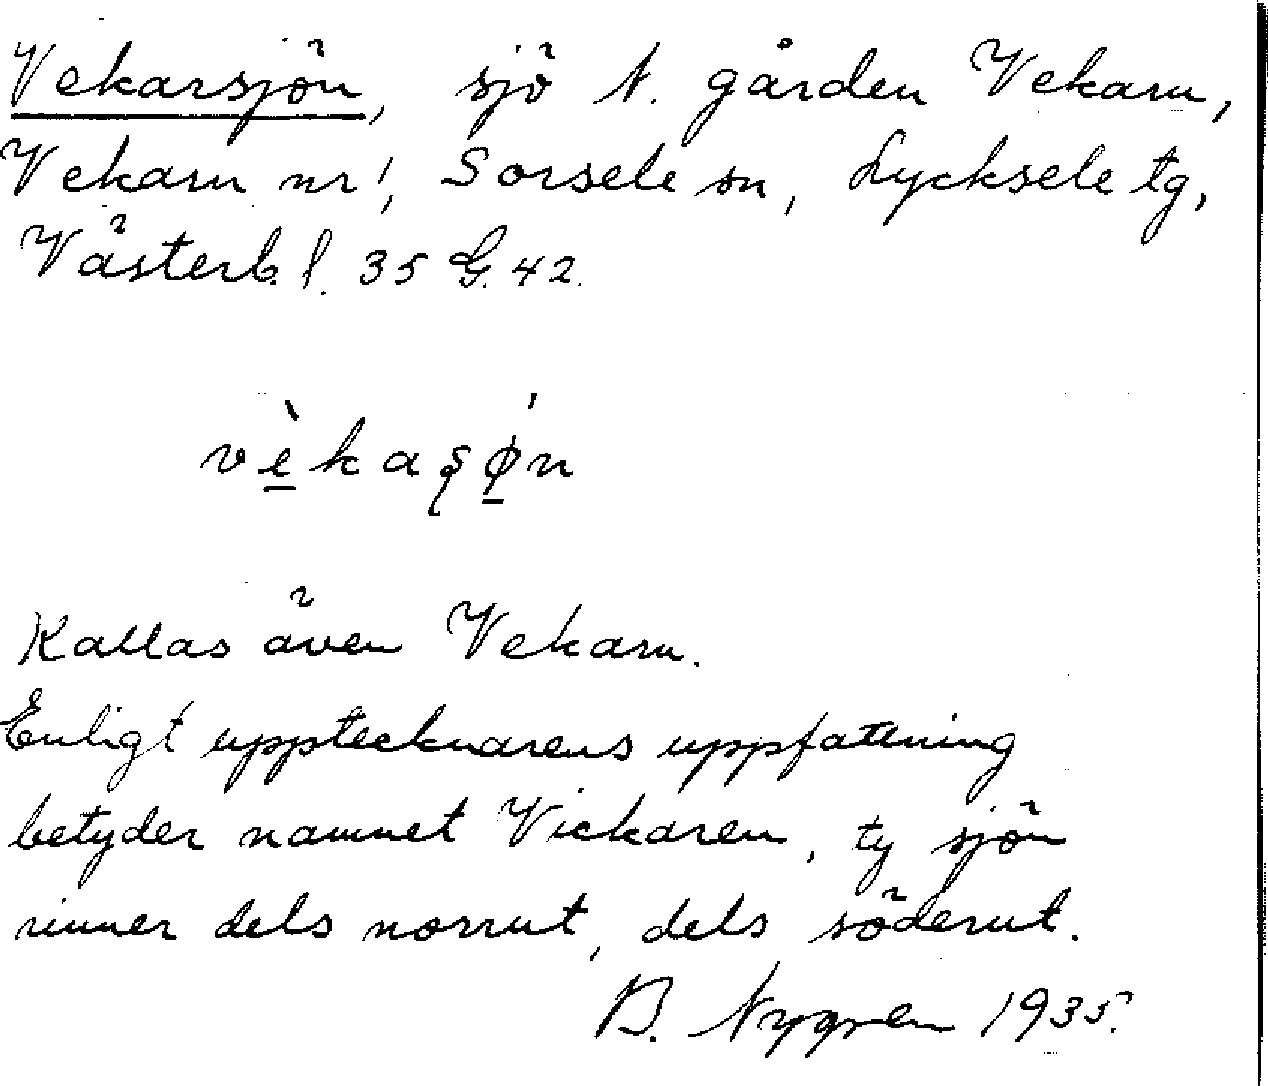 Vekarsjön, sjö N. gården Vekarn,
Vekarn nr 1, Sorsele sn, Lycksele tg,
Västerb. l. 35 G. 42.
vèkaʂǿn
Kallas även Vekarn.
Enligt upptecknarens uppfattning
betyder namnet Vickaren, ty sjön
rinner dels norrut, dels söderut.
B. Nygren 1935.